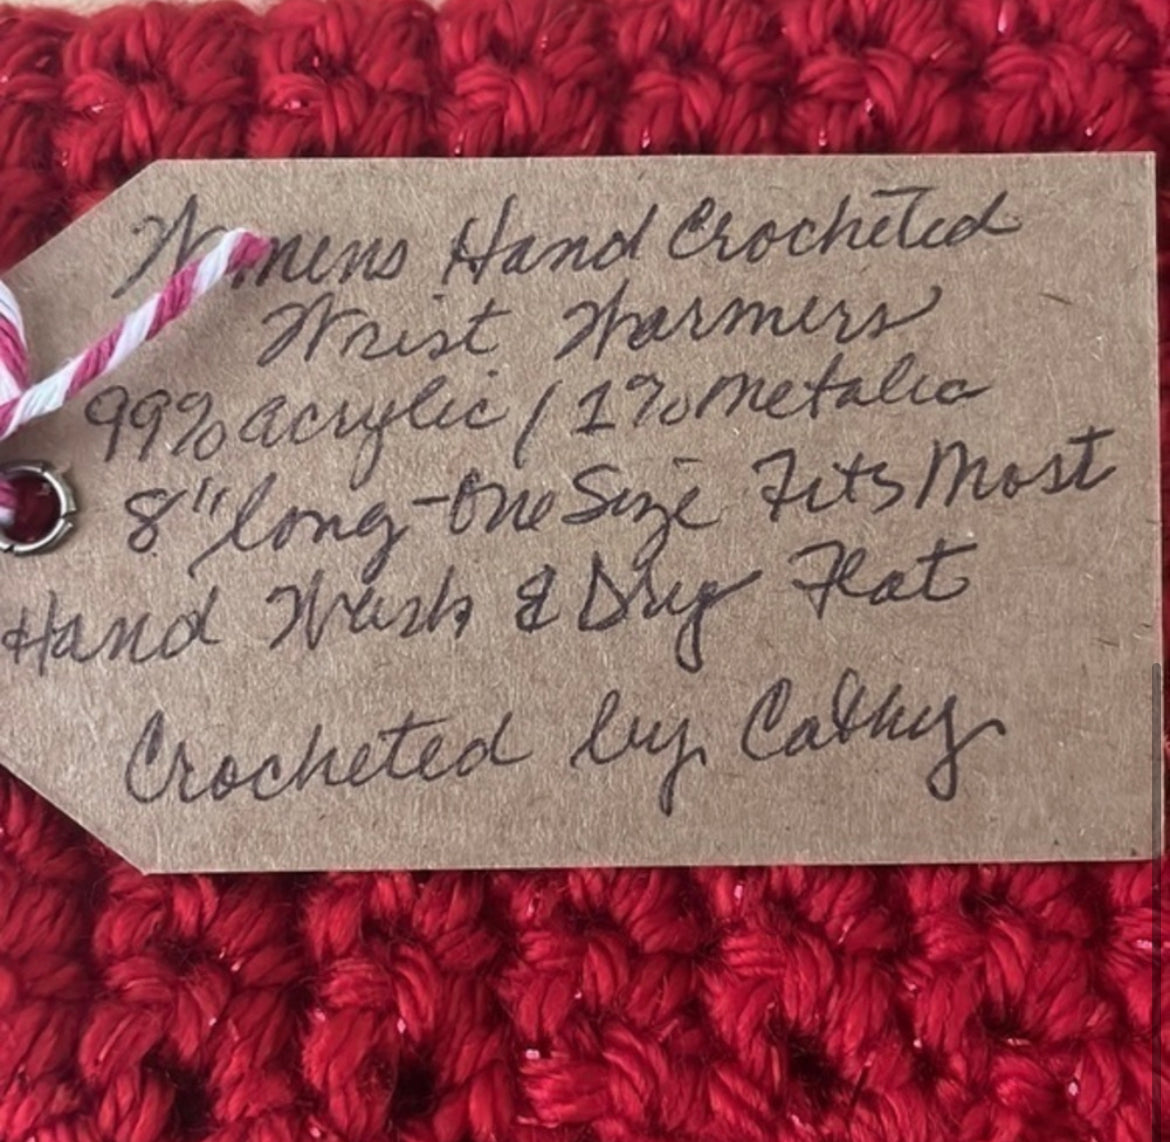 Womens Hand Crocheted
Wrist Warmers
99% acrylic / 1% metalic
8" long - One Size Fits Most
Hand Wash & Dry Flat
Crocheted by Cathy